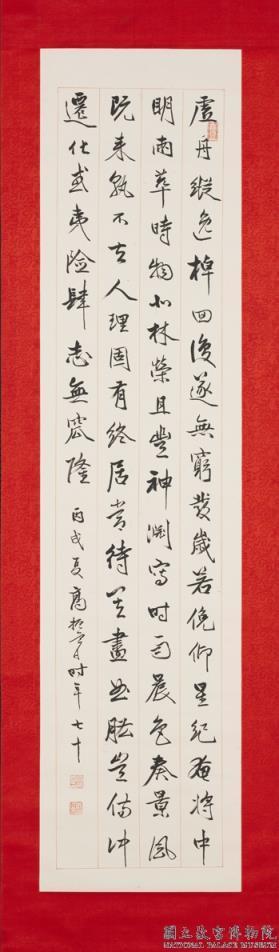 虛舟縱逸棹回復遂無窮發歲若俛仰星紀奄將中
明兩萃時物北林榮且豐神淵寫時雨晨色奏景風
既來孰不去人理固有終居常待其盡曲肱豈傷沖
遷化或夷險肆志無窊隆 丙戌夏高振霄時年七十
國立故宮博物院
NATIONAL PALACE MUSEUM